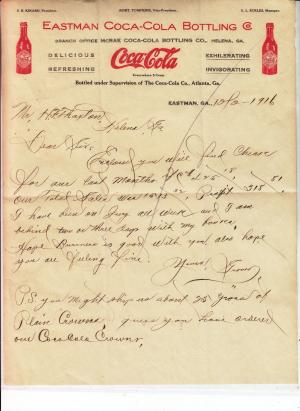 EASTMAN COCA-COLA BOTTLING Co
BRANCH OFFICE McRAE COCA-COLA BOTTLING CO., HELENA, GA.
DELICIOUS
REFRESHING
Coca-Cola
EXHILERATING
INVIGORATING
Bottled under Supervision of The Coca-Cola Co., Atlanta, Ga.
EASTMAN, GA., 12/2- 1916
Mr
Helena Ga
Dear Sir:
Enclosed you will find Check
for our last months
our total Sales was Profit 315 51
I have been on Jury all week and I am
behind two or three days with my
Hope Business is good with you, also hope
you are feeling fine.
Yours Truly
P.S. you might ship us about 25 Gross of
Plain Crowns, I guess you have ordered
our Coca Cola Crowns,